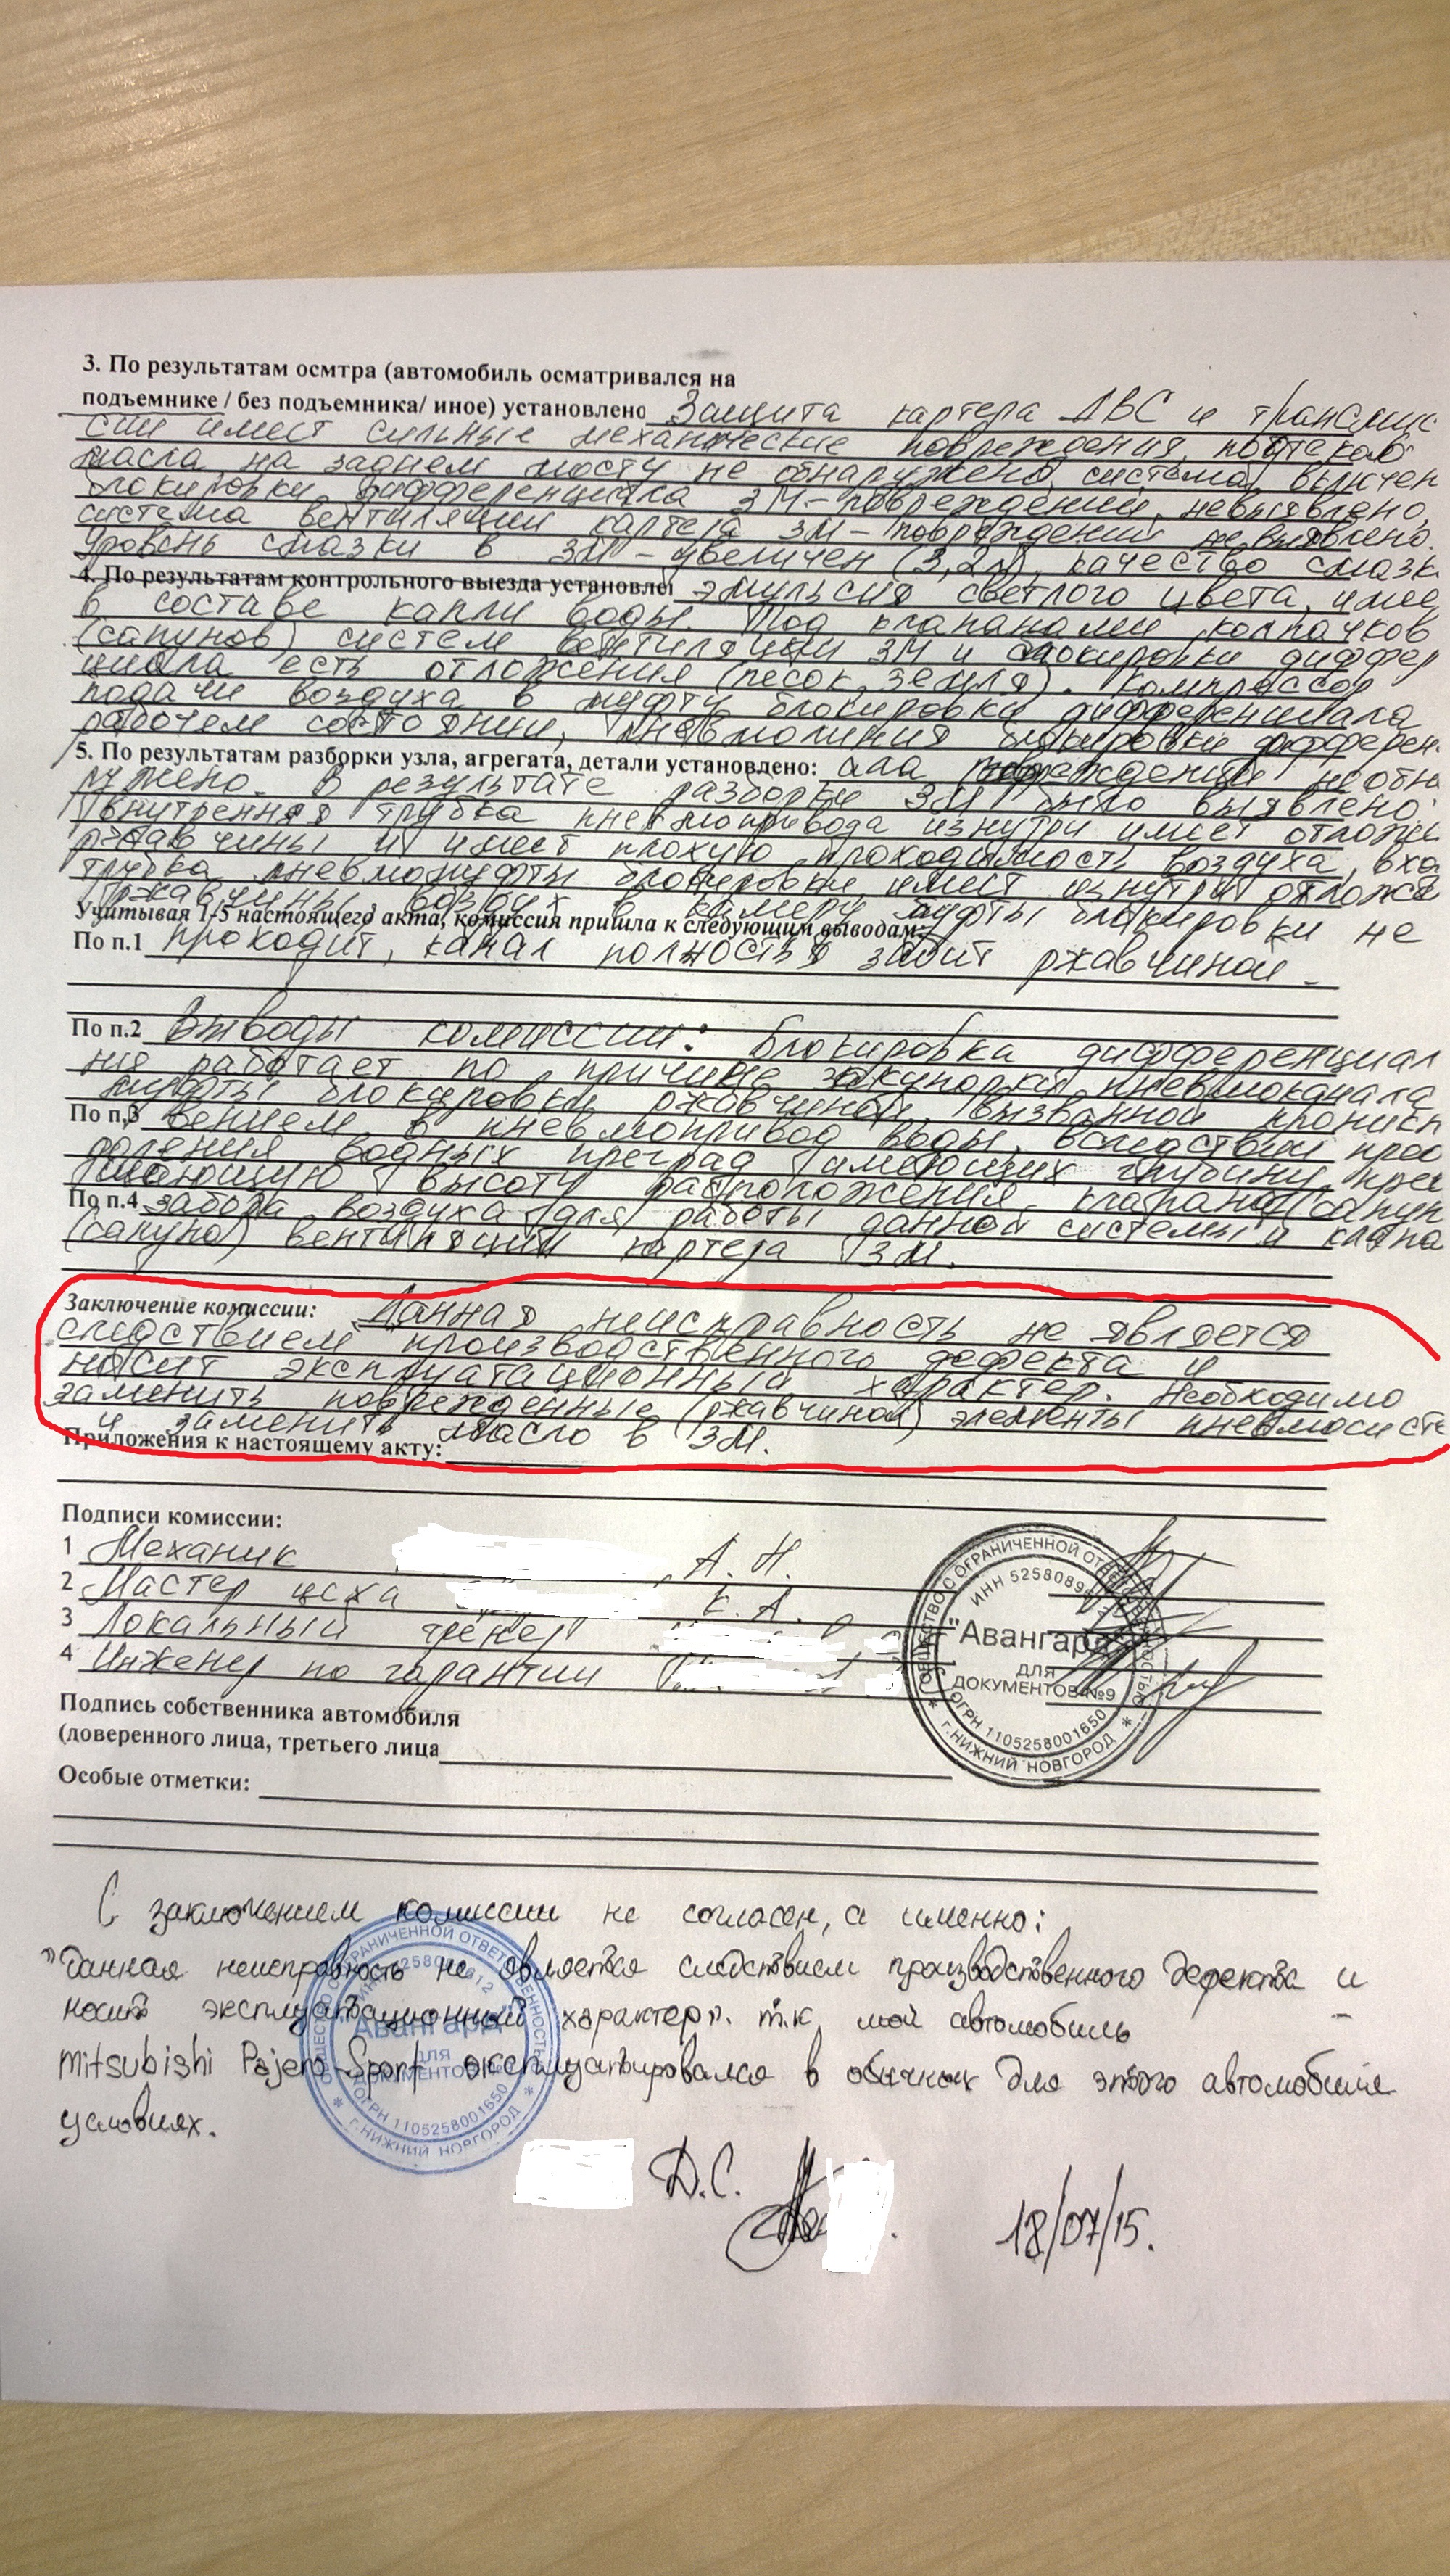 3. По результатам осмтра (автомобиль осматривался на
подъемнике / без подъемника/ иное) установлено Защита картера ДВС и трансмис
сии имеет сильные механические повреждения, подтеков
масла на заднем мосту не обнаружено, система включен
блокировки дифференциала ЗМ – повреждений невыявлено,
система вентиляции картера ЗМ – повреждений не выявлено.
Уровень смазки в ЗМ – увеличен (3,2л), качество смазк
4. По результатам контрольного выезда установлен эмульсия светлого цвета, имее
в составе капли воды. Под клапанами колпачков
(сапунов) систем вентиляции ЗМ и блокировки диффер
циала есть отложения (песок, земля). Компрессор
подачи воздуха в муфту блокировки дифференциала
рабочем состоянии, пневмолиния блокировки дифферен
5. По результатам разборки узла, агрегата, детали установлено: ала повреждений необна
ружено. В результате разборки ЗМ было выявлено:
внутренняя трубка пневмопривода изнутри имеет отложе
ржавчины и имеет плохую проходимость воздуха, вхо
трубка пневмомуфты блокировки имеет изнутри отложе
ржавчины, воздух в камеру муфты блокировки не
Учитывая 1-5 настоящего акта, комиссия пришла к следующим выводам:
По п.1 проходит, канал полностью забит ржавчиной.
По п.2 Выводы комиссии: блокировка дифференциал
не работает по причине закупорки пневмоканала
муфты блокировки ржавчиной, вызванной проник
По п.3 вением в пневмопривод воды, вследствии прео
доления водных преград имеющих глубину, прев
шающую высоту расположения клапана (сапун
По п.4 забора воздуха для работы данной системы и клапа
(сапуна) вентиляции картера ЗМ.
Заключение комиссии: Данная неисправность не является
следствием производственного дефекта и
носит эксплуатационный характер. Необходимо
заменить повреждённые (ржавчиной) элементы пневмосисте
и заменить масло в ЗМ.
Приложения к настоящему акту:
Подписи комиссии:
1 Механик А. Н.
2 Мастер цеха К. А.
3 Локальный тренер
4 Инженер по гарантии
ОБЩЕСТВО С ОГРАНИЧЕННОЙ ОТВЕТСТВЕННОСТЬЮ
ИНН 5258089
"Авангард"
для
ДОКУМЕНТОВ №9
ОГРН 1105258001650
* г.НИЖНИЙ НОВГОРОД *
Подпись собственника автомобиля
(доверенного лица, третьего лица
Особые отметки:
С заключением комиссии не согласен, а именно:
"Данная неисправность не является следствием производственного дефекта и
носит эксплуатационный характер". т.к. мой автомобиль
Mitsubishi Pajero Sport эксплуатировался в обычных для этого автомобиля
условиях.
ОГРАНИЧЕННОЙ ОТВЕТСТВЕННОСТЬЮ
Авангард
для
ДОКУМЕНТОВ
ОГРН 1105258001650
* г.НИЖНИЙ НОВГОРОД *
Д.С.
18/07/15.